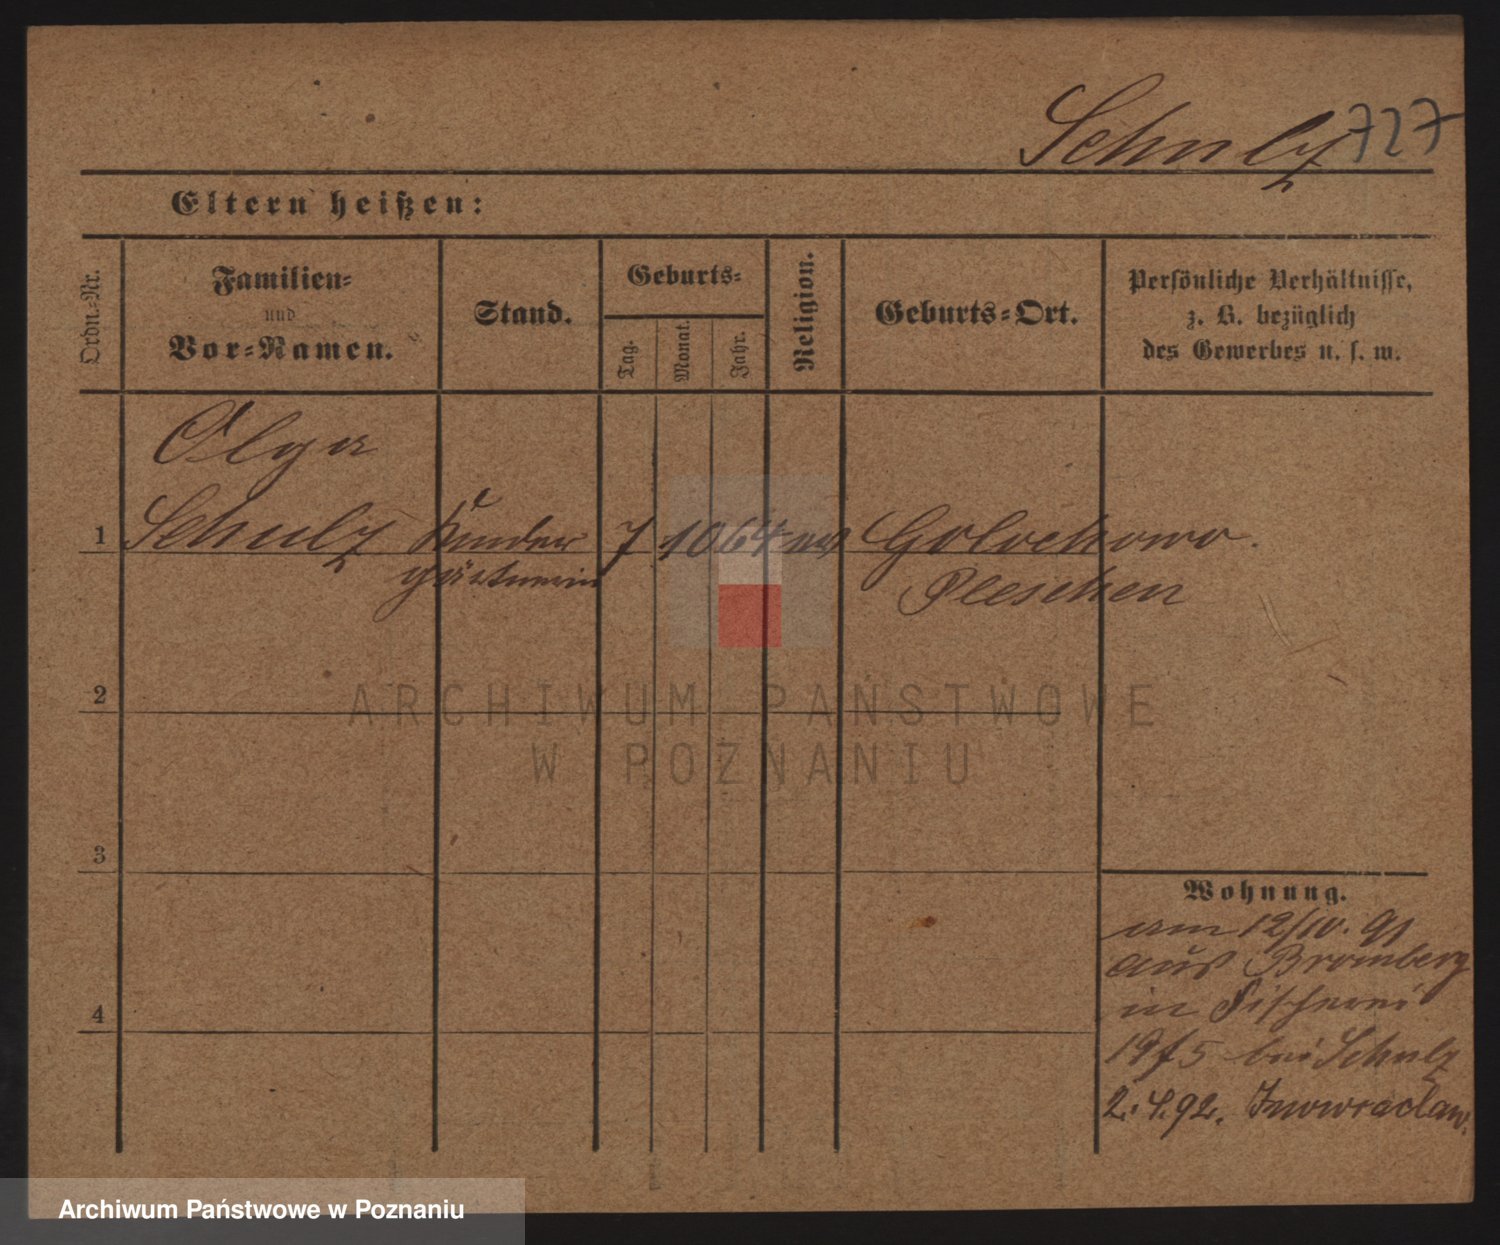 Schulz 727
Eltern heißen:
Ordn.-Nr.
Familien-
und
Vor-Namen.
Stand.
Geburts-
Tag.
Monat.
Jahr.
Religion.
Geburts-Ort.
Persönliche Verhältnisse,
z. B. bezüglich
des Gewerbes u. s. w.
Olga
1 Schulz Kinder 7 10 64 Golochowo.
gärtnerin Pleschen
2
ARCHIWUM PAŃSTWOWE
W POZNANIU
3
Wohnung.
am 12/IV. 91
aus Bromberg
in Fischerei
bei Schulz
4
2.4.92. Inowraclaw.
Archiwum Państwowe w Poznaniu